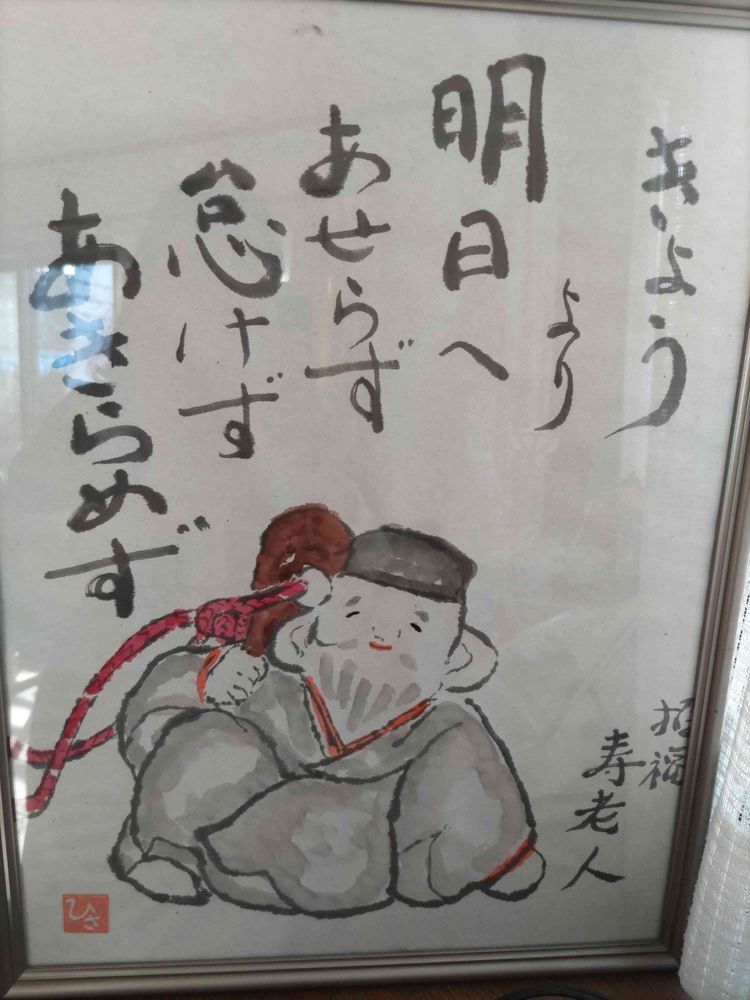 きょう
より
明日へ
あせらず
怠けず
あきらめず
招福
寿老人
ひさ